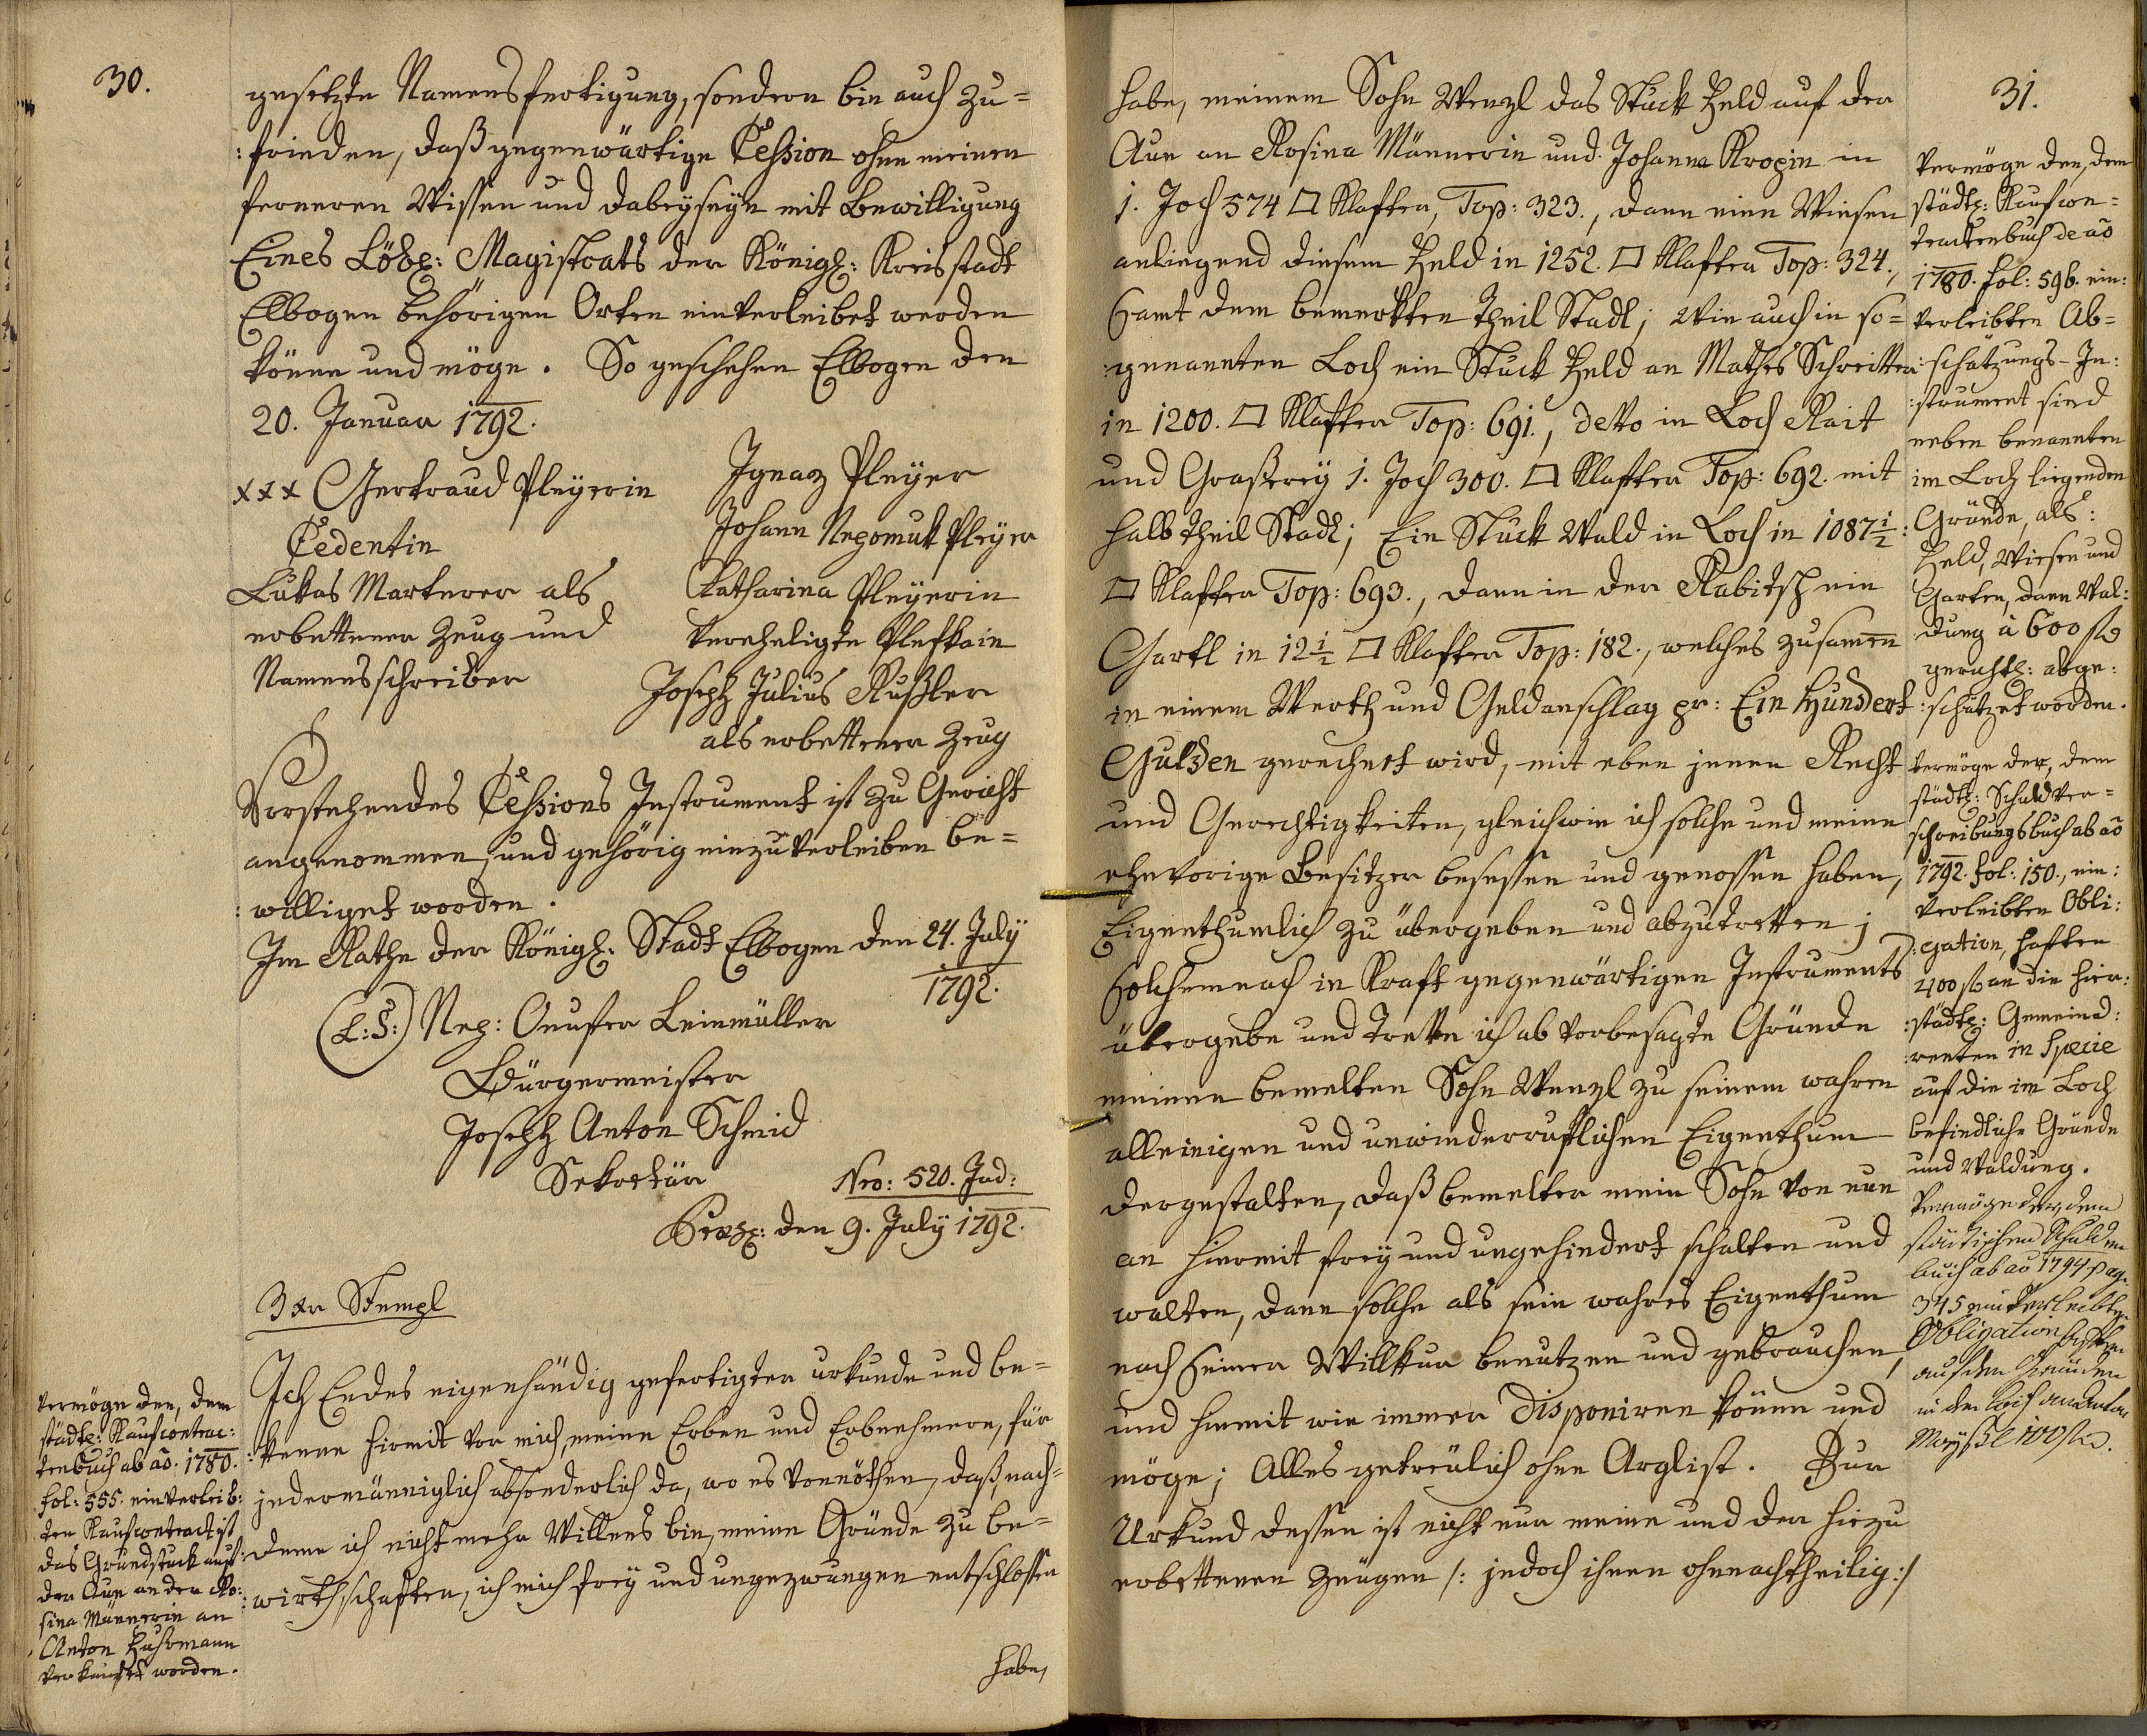 30.
gesetzte Namensfertigung, sondern bin auch zu=
:frieden, daß gegenwärtige Cession ohne meinen
ferneren Wissen und Dabeyseyn mit Bewilligung
Eines Löbl: Magistrats der Königl: Kreisstadt
Elbogen behörigen Orten einverleibet werden
könne und möge. So geschehen Elbogen den
20. Januar 1792.
xxx Gertraud Pleyerin
Cedentin
Lukas Marterer als
erbettener Zeug und
Namensschreiber
Ignaz Pleyer
Johann Nepomuk Pleyer
Catharina Pleyerin
vereheligte
Joseph Julius Rußler
als erbettener Zeug
Vorstehendes Cessions Instrument ist zu Gericht
angenommen, und gehörig einzuverleiben be=
:williget worden.
Im Rathe der Königl: Stadt Elbogen den 24. July
1792.
(L:S:) Nep: Leinmüller
Bürgermeister
Joseph Anton Schmid
Sekretär
Nro: 520. Jud:
den 9. July 1792.
3 xr Stempl
Ich Endes eigenhändig gefertigter urkunde und be=
:kenne hiemit vor mich, meine Erben und Erbnehmern, für
jedermänniglich absonderlich da, wo es vonnöthen, daß, nach=
deme ich nicht mehr Willens bin, meine Gründe zu be=
:wirthschaften, ich mich frey und ungezwungen entschlossen
habe,
Vermöge den, dem
städtl: Kaufcontrac:
tenbuch ab aõ. 1780.
fol: 555. einverleib:
ten Kaufcontract ist
das Grundstück auf
der Aue an der Ro:
sina Männerin an
Anton
verkaufet worden.
31.
habe, meinem Sohn Wenzl das Stück Feld auf der
Aue an Rosina Männerin und Johanna Kropin in
1. Joch 574 □ Klafter, Top: 323., dann eine Wiesen
anliegend diesem Feld in 1252. □ Klafter Top: 324.,
samt dem bemerkten Theil Stadl; Wie auch in so=
:genannten Loch ein Stück Feld an Mathes Schreitter
in 1200. □ Klafter Top: 691., detto in Loch Rait
und Graßerey 1. Joch 300. □ Klafter Top: 692. mit
halb Theil Stadl; Ein Stück Wald in Loch in 1087½
□ Klafter Top: 693., dann in der Rabitsch ein
Gartl in 12½ □ Klafter Top: 182., welches zusamen
in einem Werth und Geldanschlag pr: Ein Hundert
Gulden gerechnet wird, mit eben jenen Recht
und Gerechtigkeiten, gleichwie ich solche und meine
ehevorige Besitzer besessen und genossen haben,
Eigenthumlich zu übergeben und abzutretten;
solchemnach in Kraft gegenwärtigen Instruments
übergebe und trette ich ab vorbesagte Gründe
meinen bemelten Sohn Wenzl zu seinem wahren
alleinigen und unwiederruflichen Eigenthum
dergestalten, daß bemelter mein Sohn von nun
an hiermit frey und ungehindert schalten und
walten, dann solche als sein wahres Eigenthum
nach seiner Willkur benutzen und gebrauchen,
und hiemit wie immer disponiren könne und
möge; Alles getreulich ohne Arglist. Zur
Urkund dessen ist nicht nur meine und der hiezu
erbettenen Zeugen /: jedoch ihnen ohnnachtheilig :/
Vermöge den, dem
städtl: Kaufcon=
tractenbuch de aõ
1780. fol: 596. ein:
verleibten Ab=
:schätzungs-In:
:strument sind
neben benannten
im Loch liegenden
Gründe, als:
Feld, Wiesen und
Garten, dann Wal:
dung à 600 f
gerichtl: abge:
:schätzet worden.
Vermöge der, dem
städtl: Schuldver=
schreibungsbuch ab aõ
1792. fol: 150., ein:
verleibten Obli:
:gation, haften
400 f an die hier:
:städtl: Gemeind:
:renten in Specie
auf die im Loch
befindliche Gründe
und Waldung.
Vermöge der, dem
städtischen Schulden
buch ab aõ 1794 pag:
345 einverleibten
Obligation haften
auf den Gründen
in den Loch
100 f